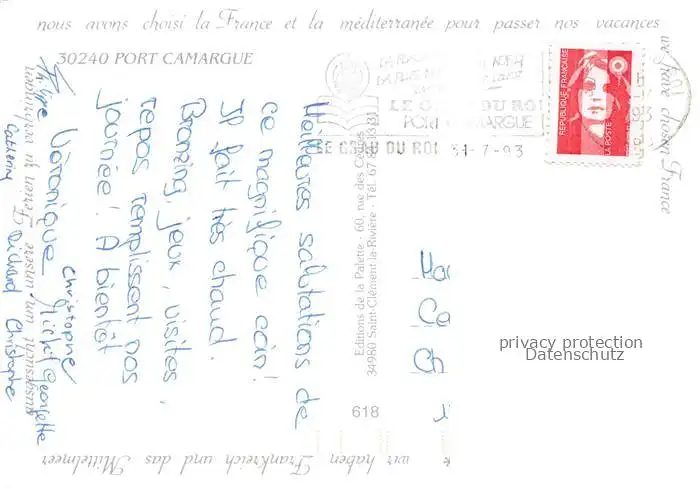 nous avons choisi la France et la méditerranée pour passer nos vacances
we have chosen France
wir haben Frankreich und das Mittelmeer
ausgesucht um unseren Ferien zu verbringen
30240 PORT CAMARGUE
Meilleures salutations de
ce magnifique coin!
Il fait très chaud.
Bronzing, jeux, visites,
repos remplissent nos
journée! A bientôt
Véronique
Christophe
Georgette
Richard Christophe
Editions de la Palette - 60, rue des Cèdres
34980 Saint-Clément-la-Rivière - Tél. 67
618
LE GRAU DU ROI
PORT CAMARGUE
LE GRAU DU ROI 31-7-93
REPUBLIQUE FRANÇAISE
LA POSTE
privacy protection
Datenschutz